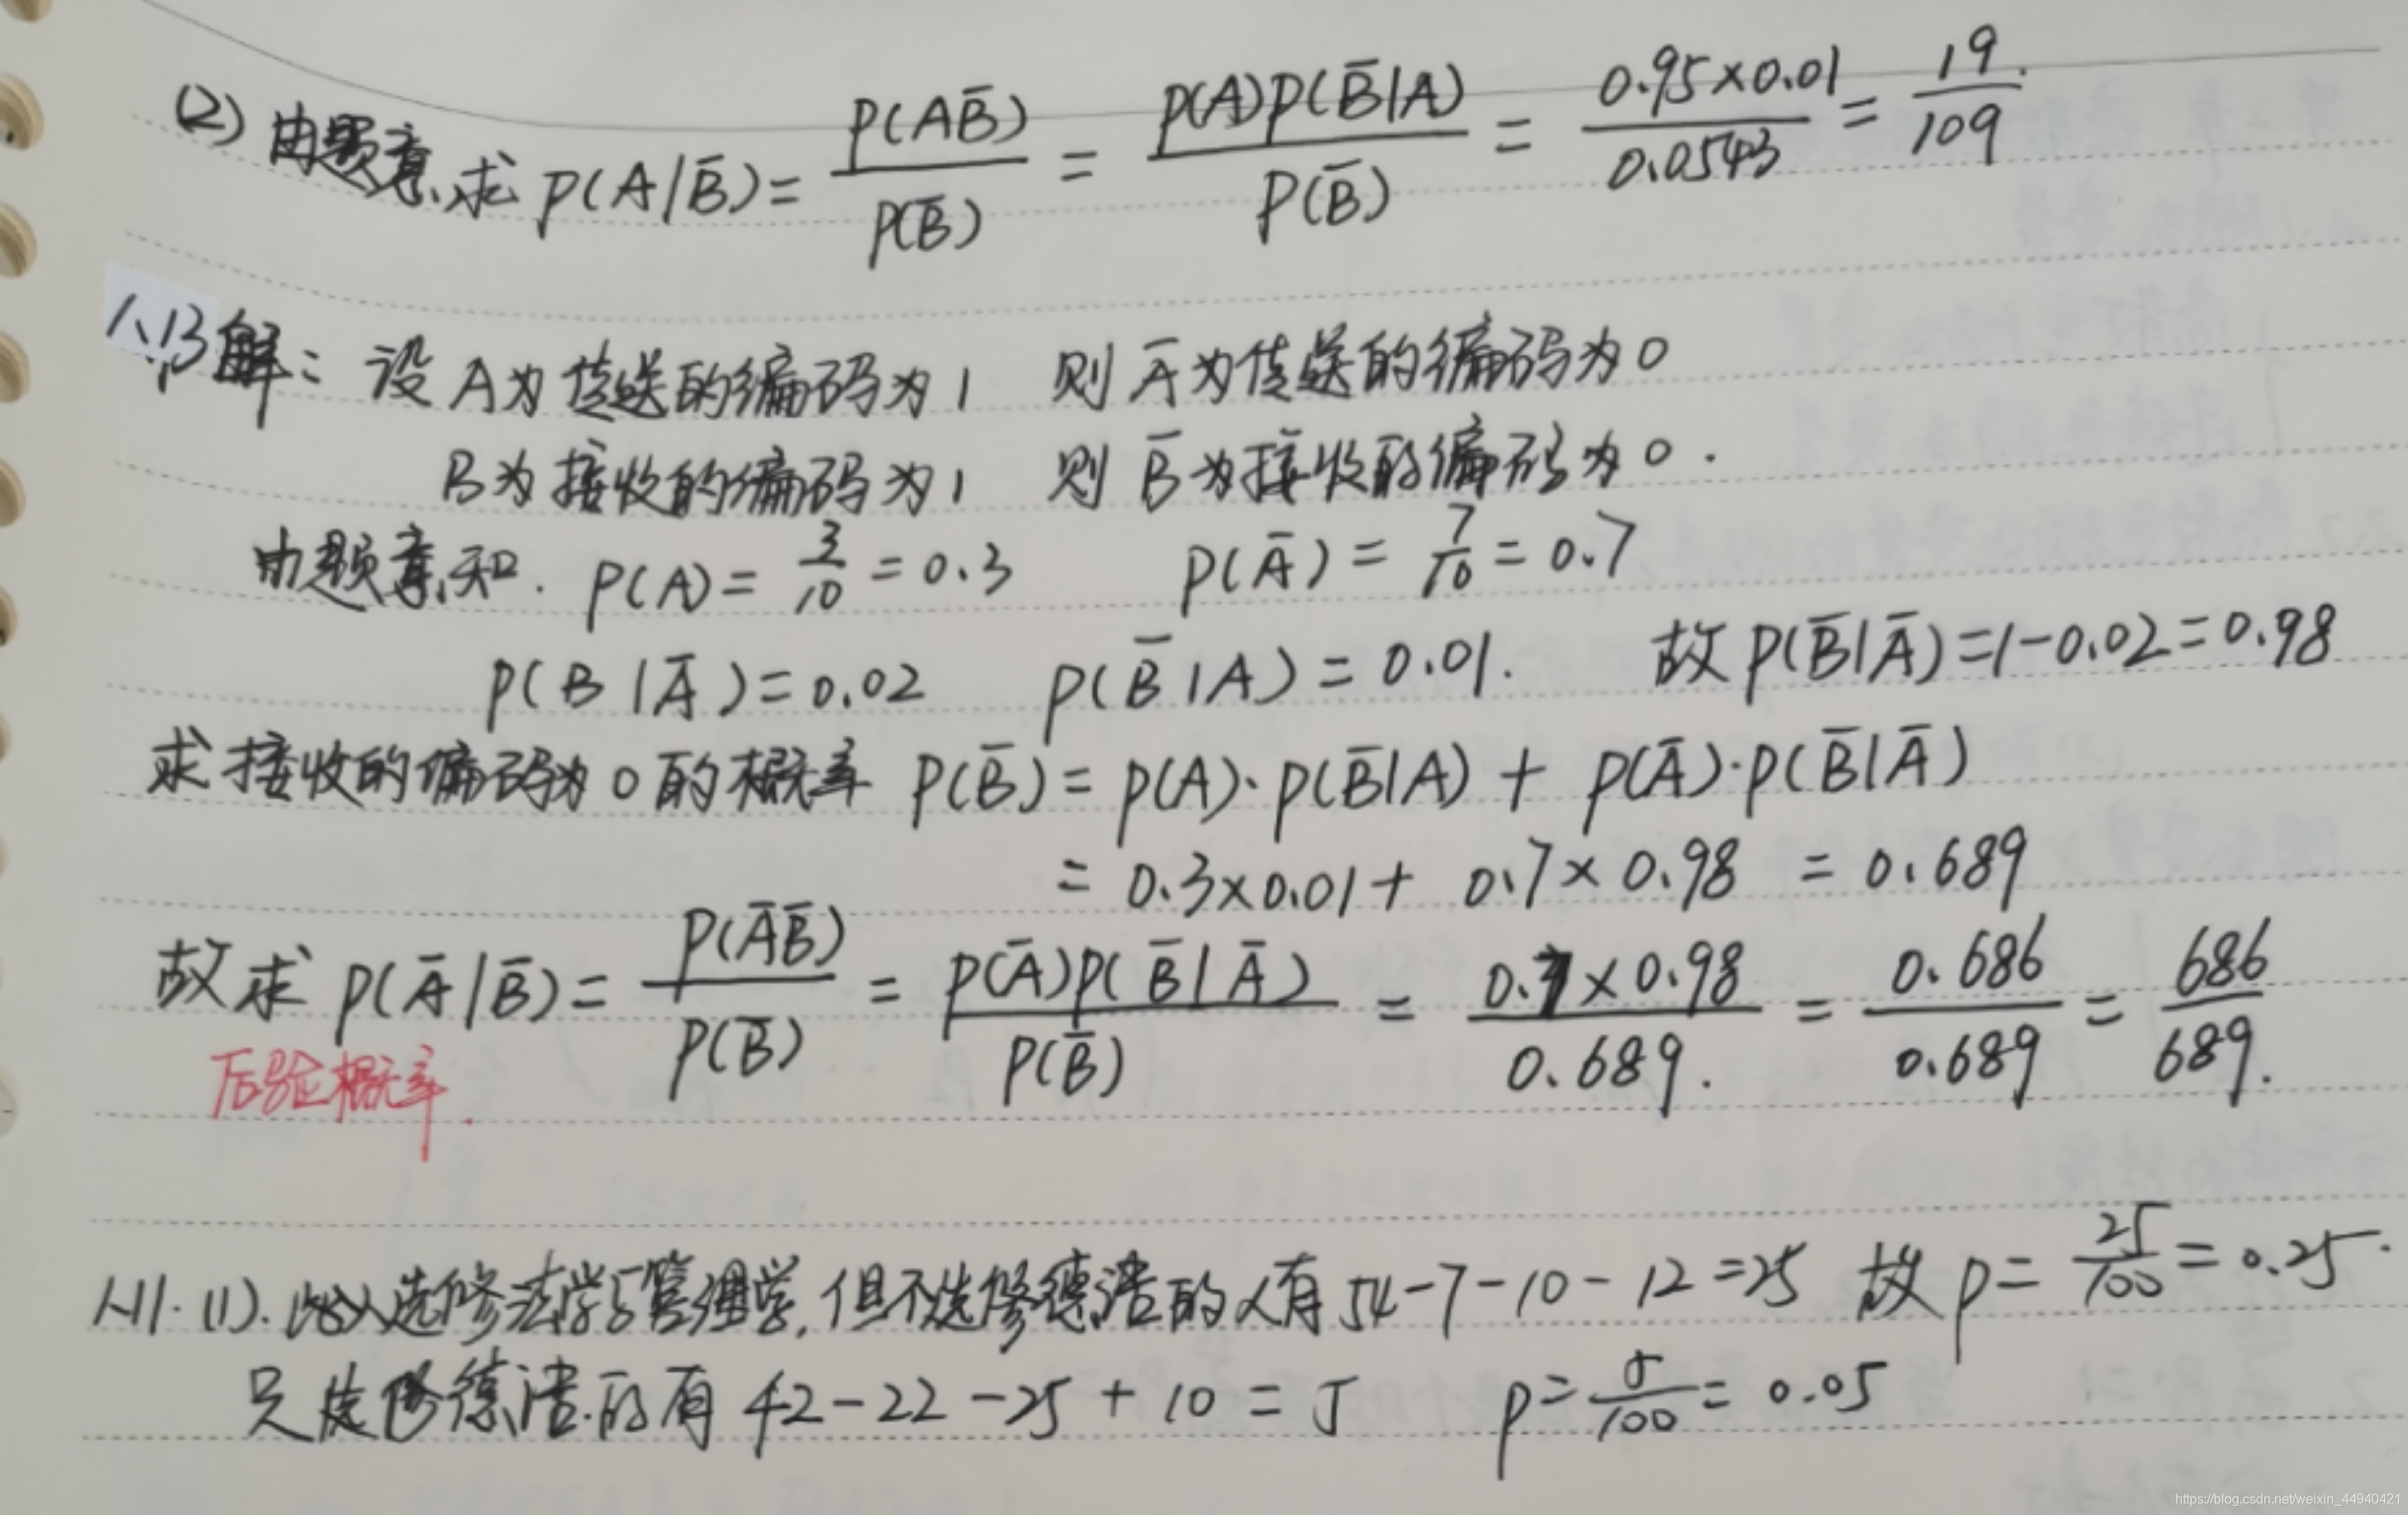 (2) 由题意,求 P(A|B̄) = P(AB̄)/P(B̄) = P(A)P(B̄|A)/P(B̄) = 0.95×0.01/0.0543 = 19/109.
1、13 解: 设 A为传送的编码为1 则 Ā为传送的编码为0
B为接收的编码为1 则 B̄为接收的编码为0.
由题意,知. P(A) = 3/10 = 0.3 P(Ā) = 7/10 = 0.7
P(B|Ā) = 0.02 P(B̄|A) = 0.01. 故 P(B̄|Ā) = 1-0.02 = 0.98
求接收的编码为0的概率 P(B̄) = P(A)·P(B̄|A) + P(Ā)·P(B̄|Ā)
= 0.3×0.01 + 0.7×0.98 = 0.689
故求 P(Ā|B̄) = P(ĀB̄)/P(B̄) = P(Ā)P(B̄|Ā)/P(B̄) = 0.7×0.98/0.689. = 0.686/0.689 = 686/689.
后验概率.
1-11. (1). 选修法学与管理学,但不选修德语的人有 54-7-10-12=25 故 P = 25/100 = 0.25.
只选修德语的有 42-22-25+10 = 5 P = 5/100 = 0.05
https://blog.csdn.net/weixin_44940421